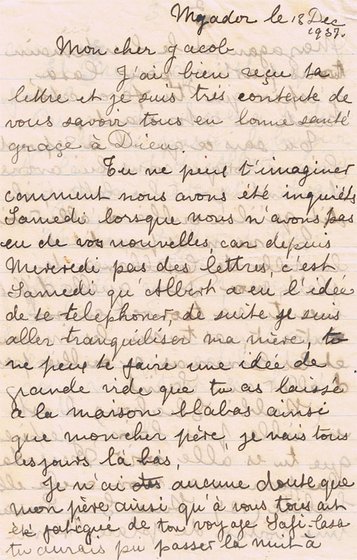 Mogador le 18 Dec
1937.
Mon cher Jacob
J'ai bien reçu ta
lettre et je suis très contente de
vous savoir tous en bonne santé
graçe à Dieu
Tu ne peus t'imaginer
comment nous avons été inquiéts
Samedi lorsque nous n'avons pas
eu de vos nouvelles, car depuis
Mercredi pas des lettres, c'est
Samedi qu'Albert a eu l'idée
de te telephoner, de suite je suis
aller tranquiliser ma mère, tu
ne peus te faire une idée de
grande vide que tu as laissé
à la maison llabas ainsi
que mon cher père, je vais tous
les jours là bas,
Je n'ai aucune doute que
mon père ainsi qu'à vous tous ait
été fatigué de ton voyage Safi-Casa
tu aurais pu passer la nuit à